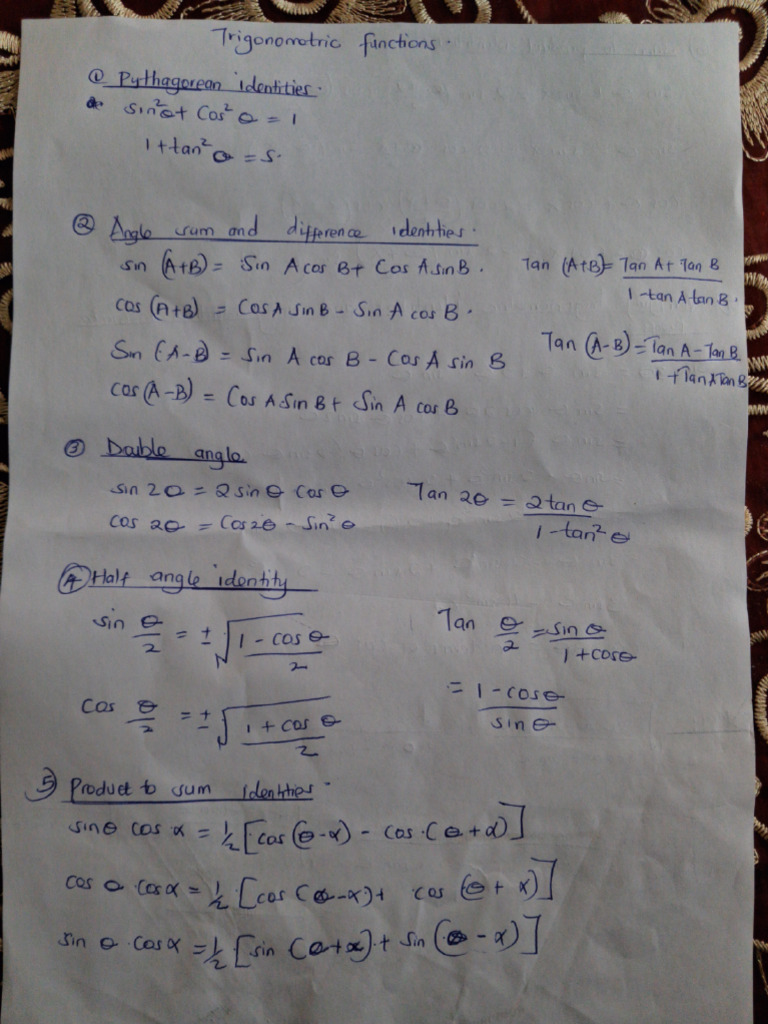 Trigonometric functions.
① Pythagorean identities.
sin²θ + Cos²θ = 1
1 + tan²θ = S.
② Angle sum and difference identities.
sin (A+B) = Sin A cos B + Cos A sin B. Tan (A+B) = Tan A + Tan B / 1 - tan A tan B.
cos (A+B) = Cos A sin B - Sin A cos B.
Sin (A-B) = Sin A cos B - Cos A sin B Tan (A-B) = Tan A - Tan B / 1 + Tan A Tan B
cos (A-B) = Cos A Sin B + Sin A cos B
③ Double angle
sin 2θ = 2 sin θ cos θ Tan 2θ = 2 tan θ / 1 - tan² θ
cos 2θ = Cos 2θ - Sin² θ
④ Half angle identity
sin θ/2 = ± √(1 - cos θ / 2) Tan θ/2 = sin θ / 1 + cos θ
cos θ/2 = ± √(1 + cos θ / 2) = 1 - cos θ / sin θ
⑤ Product to sum identities.
sin θ cos α = ½ [cos (θ - α) - cos (θ + α)]
cos θ cos α = ½ [cos (θ - α) + cos (θ + α)]
sin θ cos α = ½ [sin (θ + α) + sin (θ - α)]